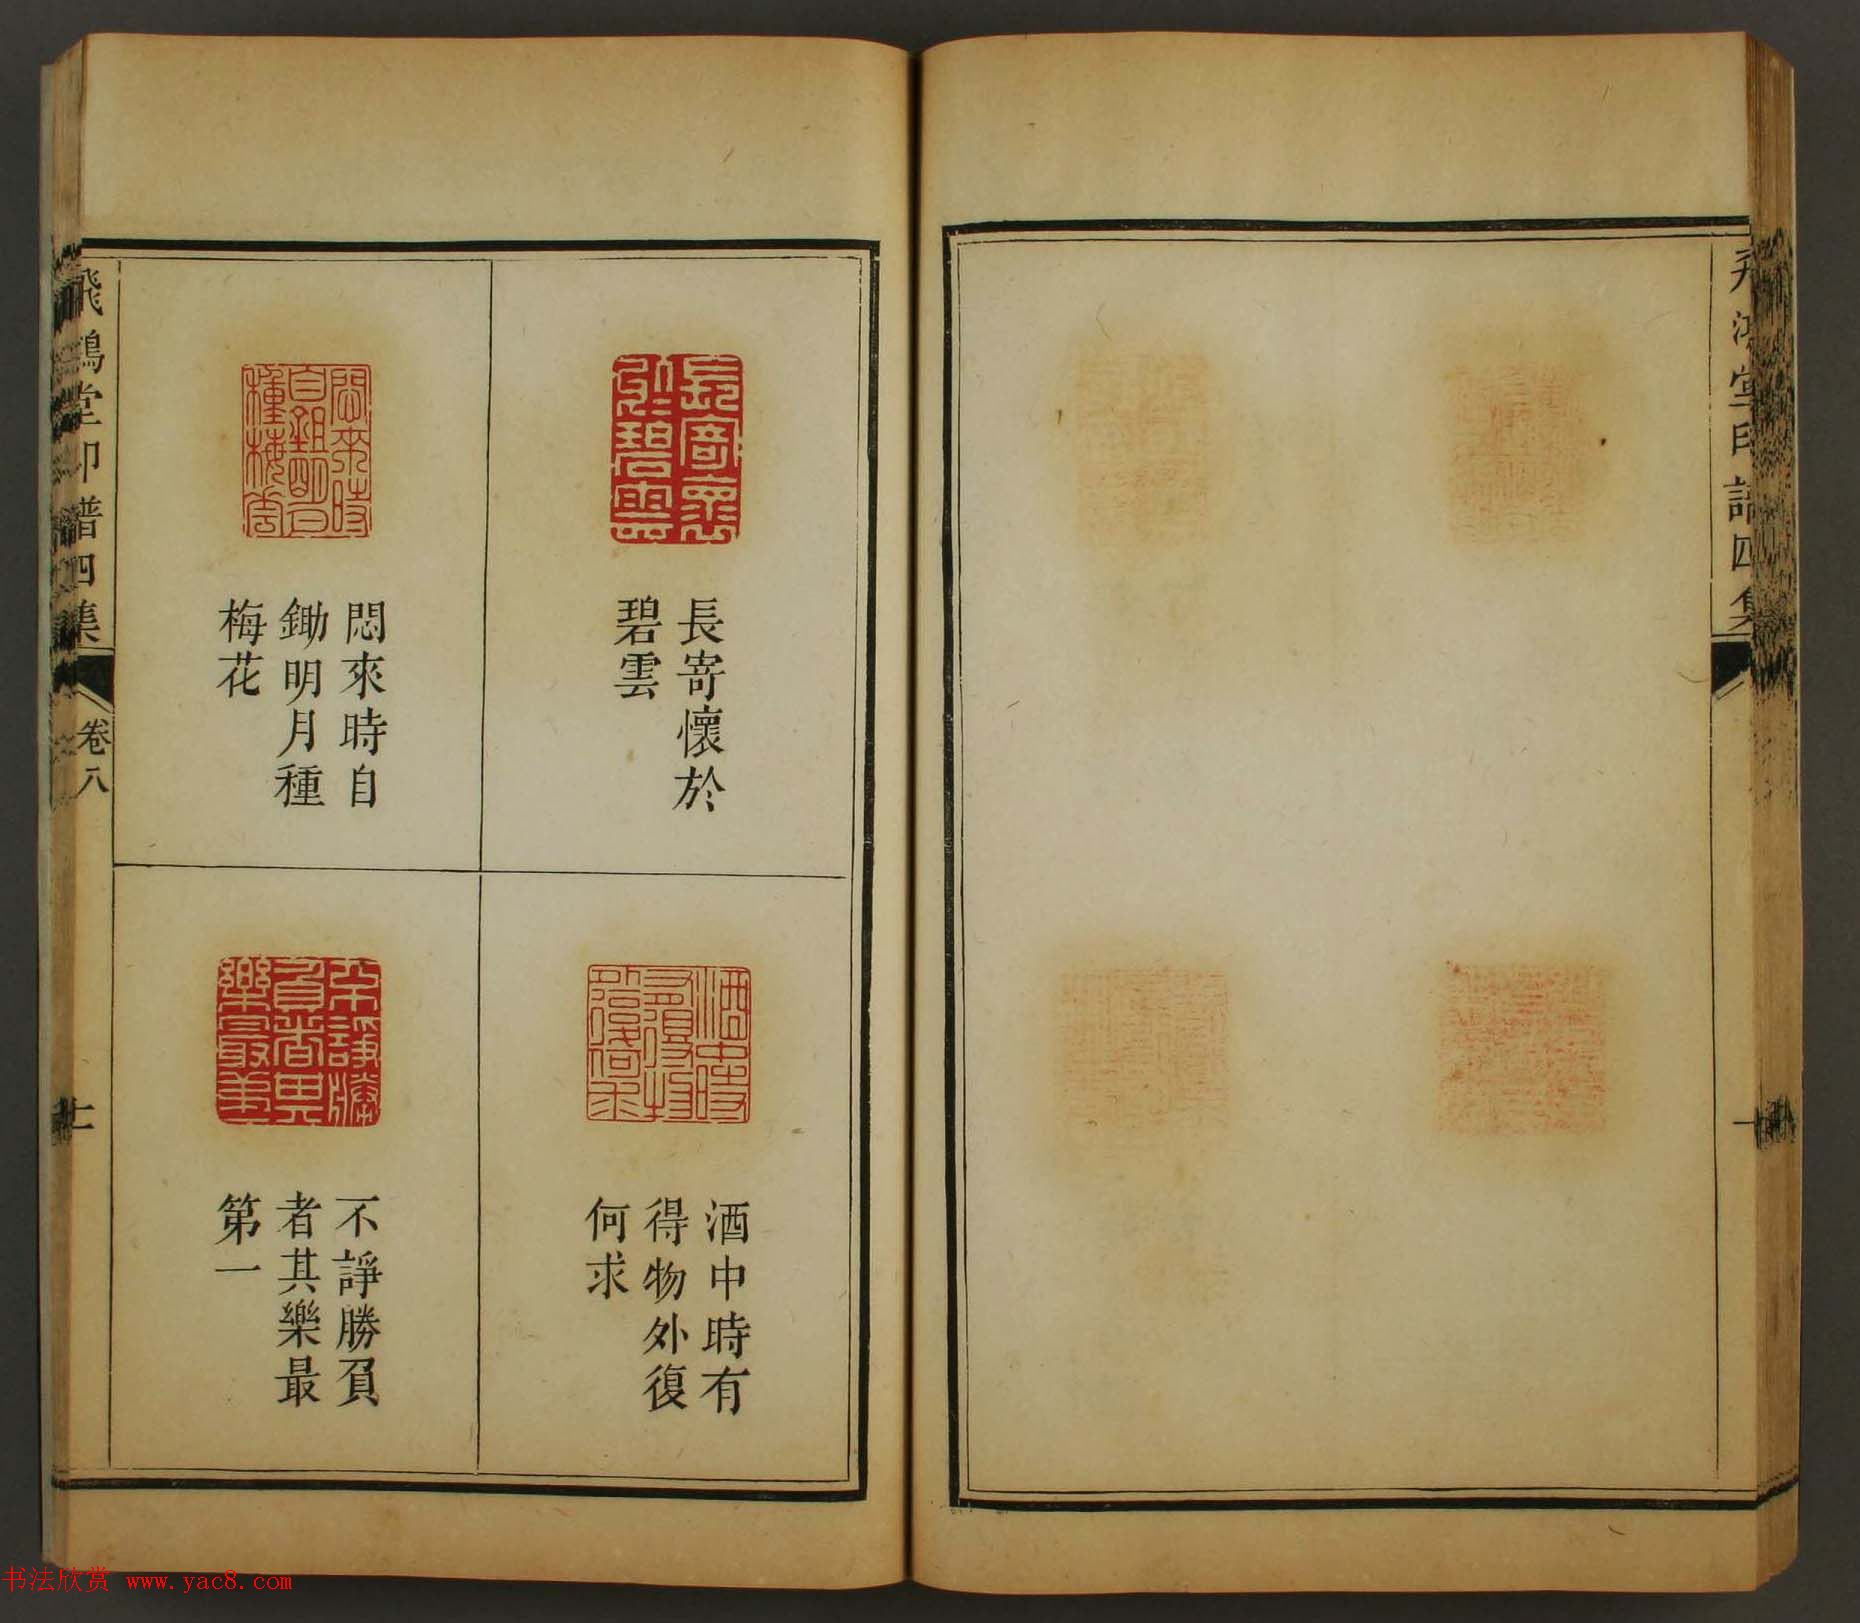 飛鴻堂印譜四集
長寄懷於
碧雲
悶來時自
鋤明月種
梅花
酒中時有
得物外復
何求
不諍勝負
者其樂最
第一
飛鴻堂印譜四集
卷八
書法欣赏 www.yac8.com